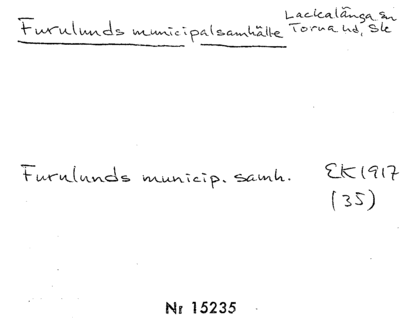 Furulunds municipalsamhälle
Lackalänga sn
Torna hd, Sk
Furulunds municip. samh.
EK 1917
(35)
Nr 15235